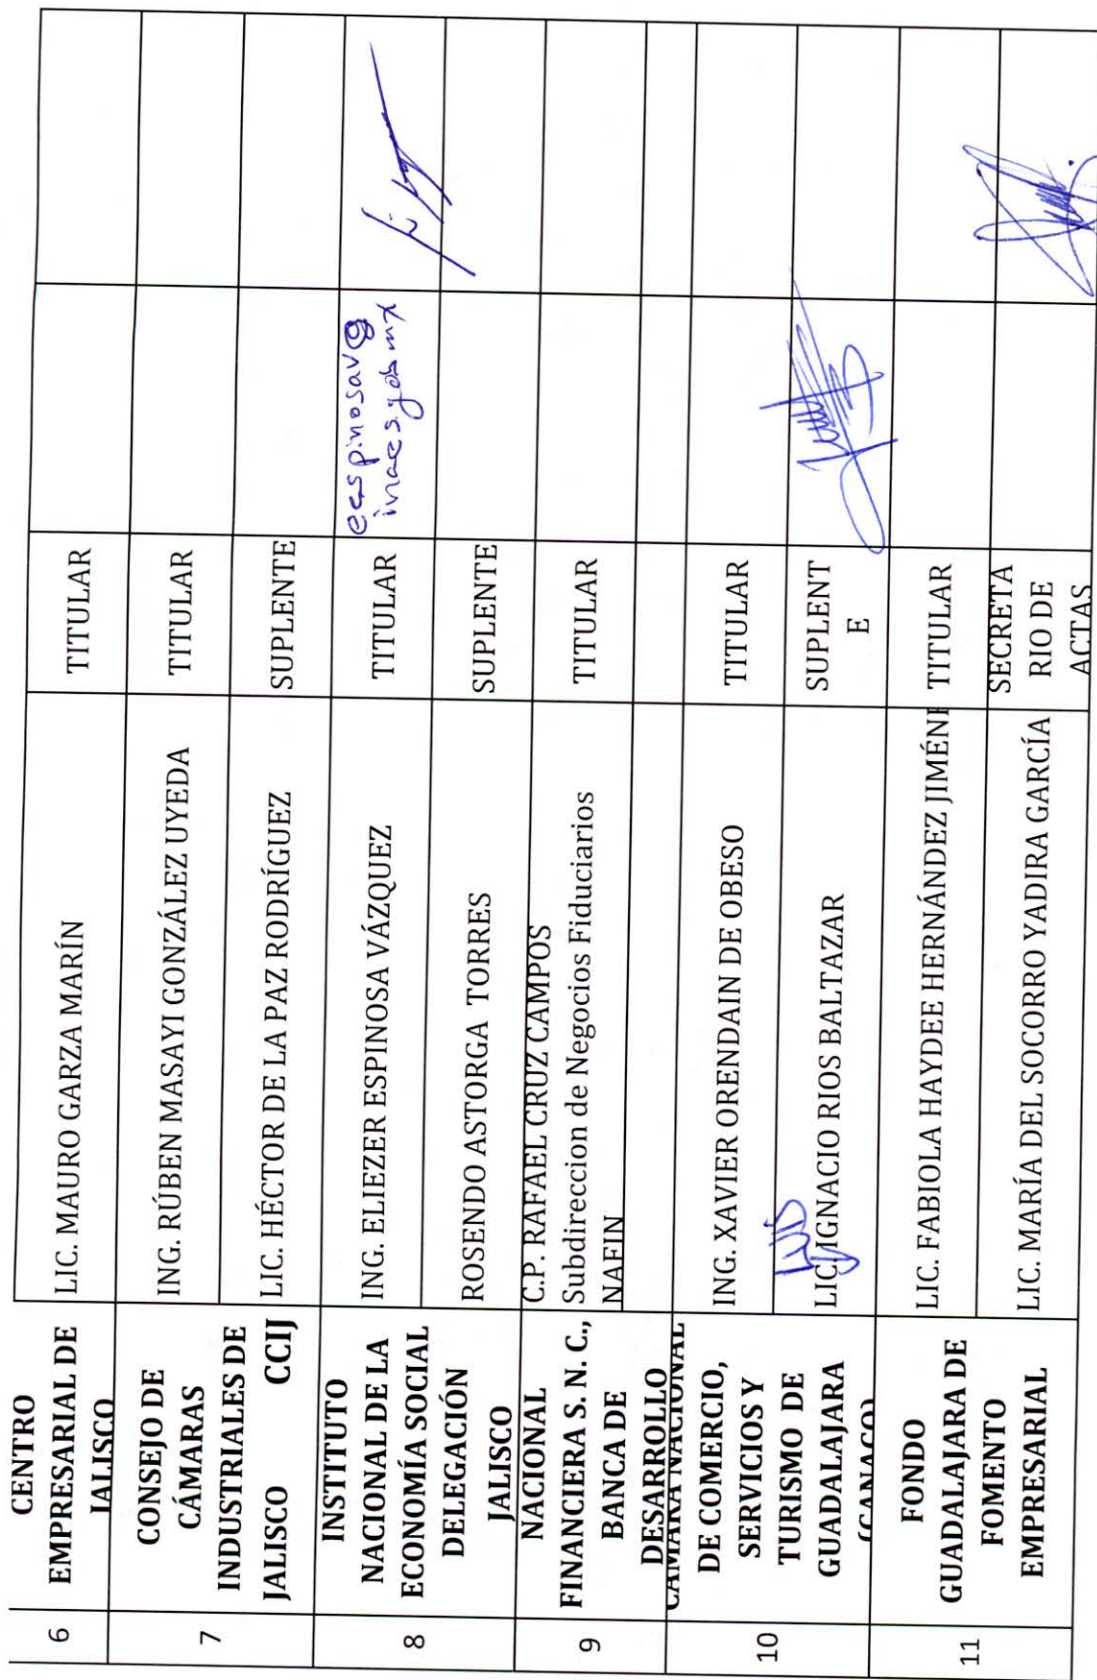 6
CENTRO
EMPRESARIAL DE
JALISCO
LIC. MAURO GARZA MARÍN
TITULAR
7
CONSEJO DE
CÁMARAS
INDUSTRIALES DE
JALISCO CCIJ
ING. RÚBEN MASAYI GONZÁLEZ UYEDA
TITULAR
LIC. HÉCTOR DE LA PAZ RODRÍGUEZ
SUPLENTE
8
INSTITUTO
NACIONAL DE LA
ECONOMÍA SOCIAL
DELEGACIÓN
JALISCO
ING. ELIEZER ESPINOSA VÁZQUEZ
TITULAR
eespinosav@
inaes.gob.mx
ROSENDO ASTORGA TORRES
SUPLENTE
9
NACIONAL
FINANCIERA S. N. C.,
BANCA DE
DESARROLLO
C.P. RAFAEL CRUZ CAMPOS
Subdireccion de Negocios Fiduciarios
NAFIN
TITULAR
10
CÁMARA NACIONAL
DE COMERCIO,
SERVICIOS Y
TURISMO DE
GUADALAJARA
(CANACO)
ING. XAVIER ORENDAIN DE OBESO
TITULAR
LIC. IGNACIO RIOS BALTAZAR
SUPLENT
E
11
FONDO
GUADALAJARA DE
FOMENTO
EMPRESARIAL
LIC. FABIOLA HAYDEE HERNÁNDEZ JIMÉNE
TITULAR
LIC. MARÍA DEL SOCORRO YADIRA GARCÍA
SECRETA
RIO DE
ACTAS